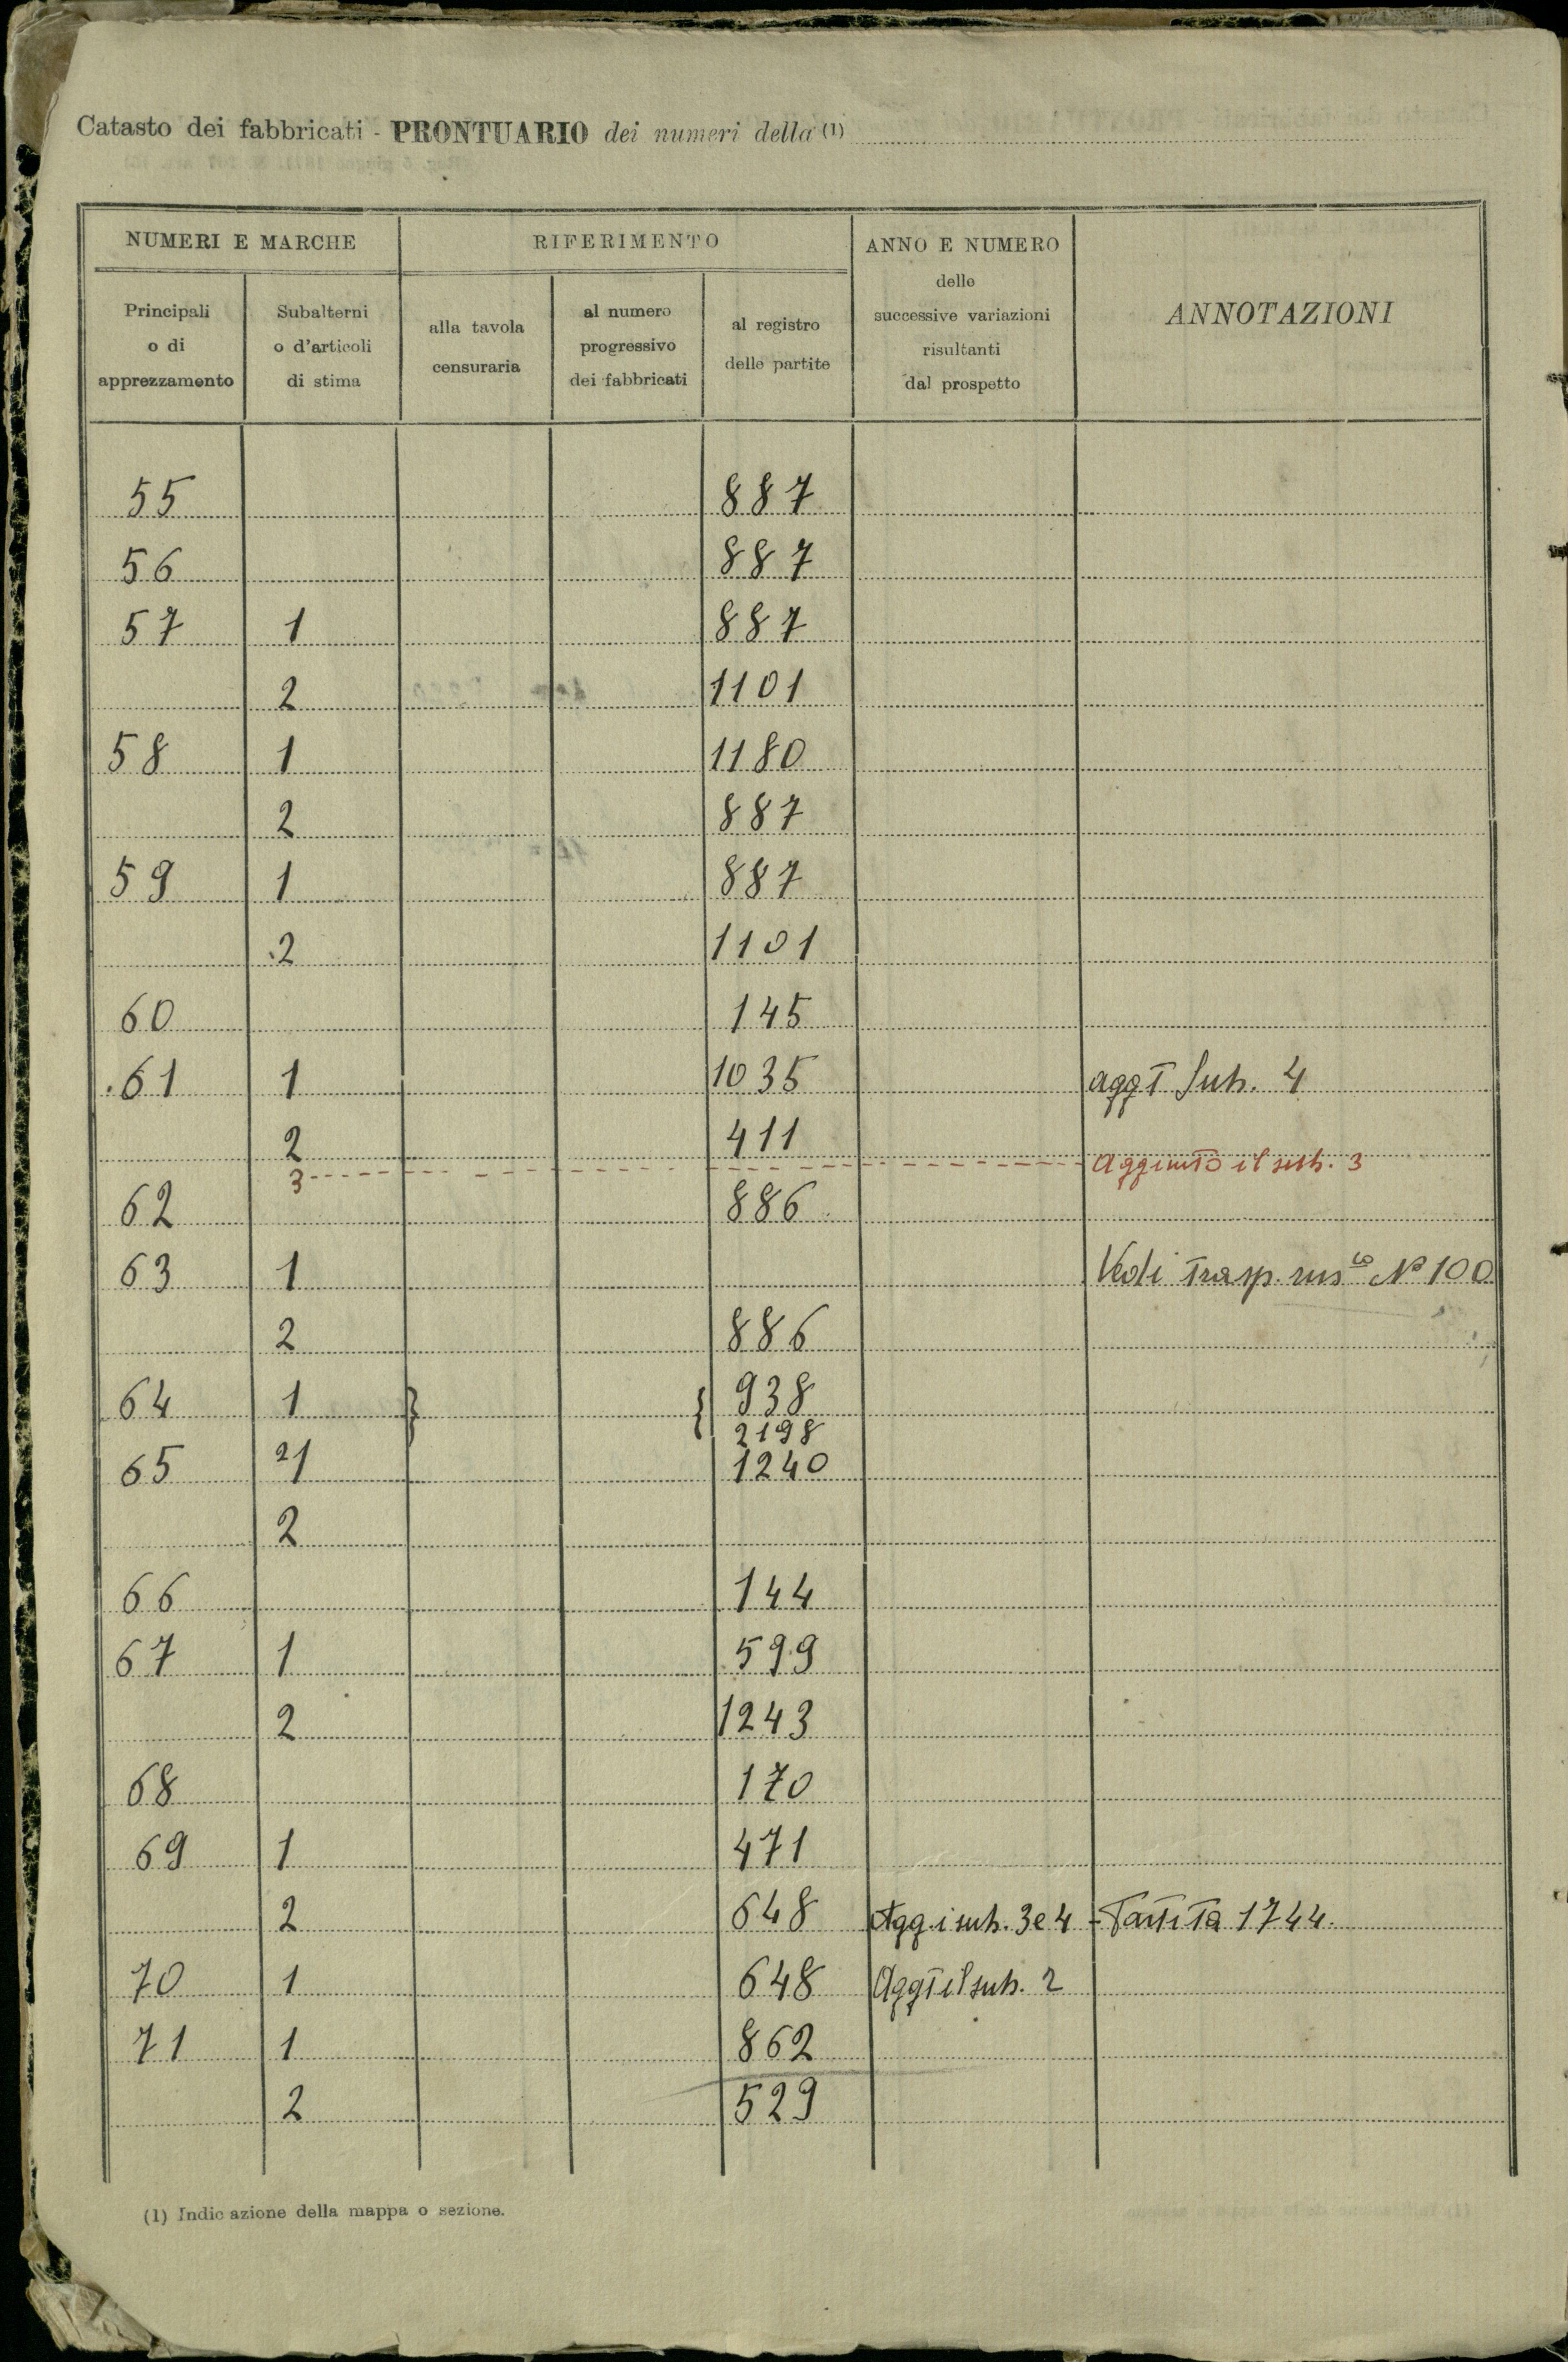 Catasto dei fabbricati - PRONTUARIO dei numeri della (1)
NUMERI E MARCHE RIFERIMENTO ANNO E NUMERO delle successive variazioni risultanti dal prospetto ANNOTAZIONI
Principali o di apprezzamento Subalterni o d'articoli di stima alla tavola censuraria al numero progressivo dei fabbricati al registro delle partite
55 887
56 887
57 1 887
2 1101
58 1 1180
2 887
59 1 887
2 1101
60 145
61 1 1035 aggt sub. 4
2 411
3 Aggiunto il sub. 3
62 886
63 1 Vedi trasp. rus co No 100
2 886
64 1 938
2 2198
65 1 1240
2
66 144
67 1 599
2 1243
68 170
69 1 471
2 648 Agg. i sub. 3 e 4 - Partita 1744.
70 1 648 Aggt il sub. 2
71 1 862
2 529
(1) Indicazione della mappa o sezione.